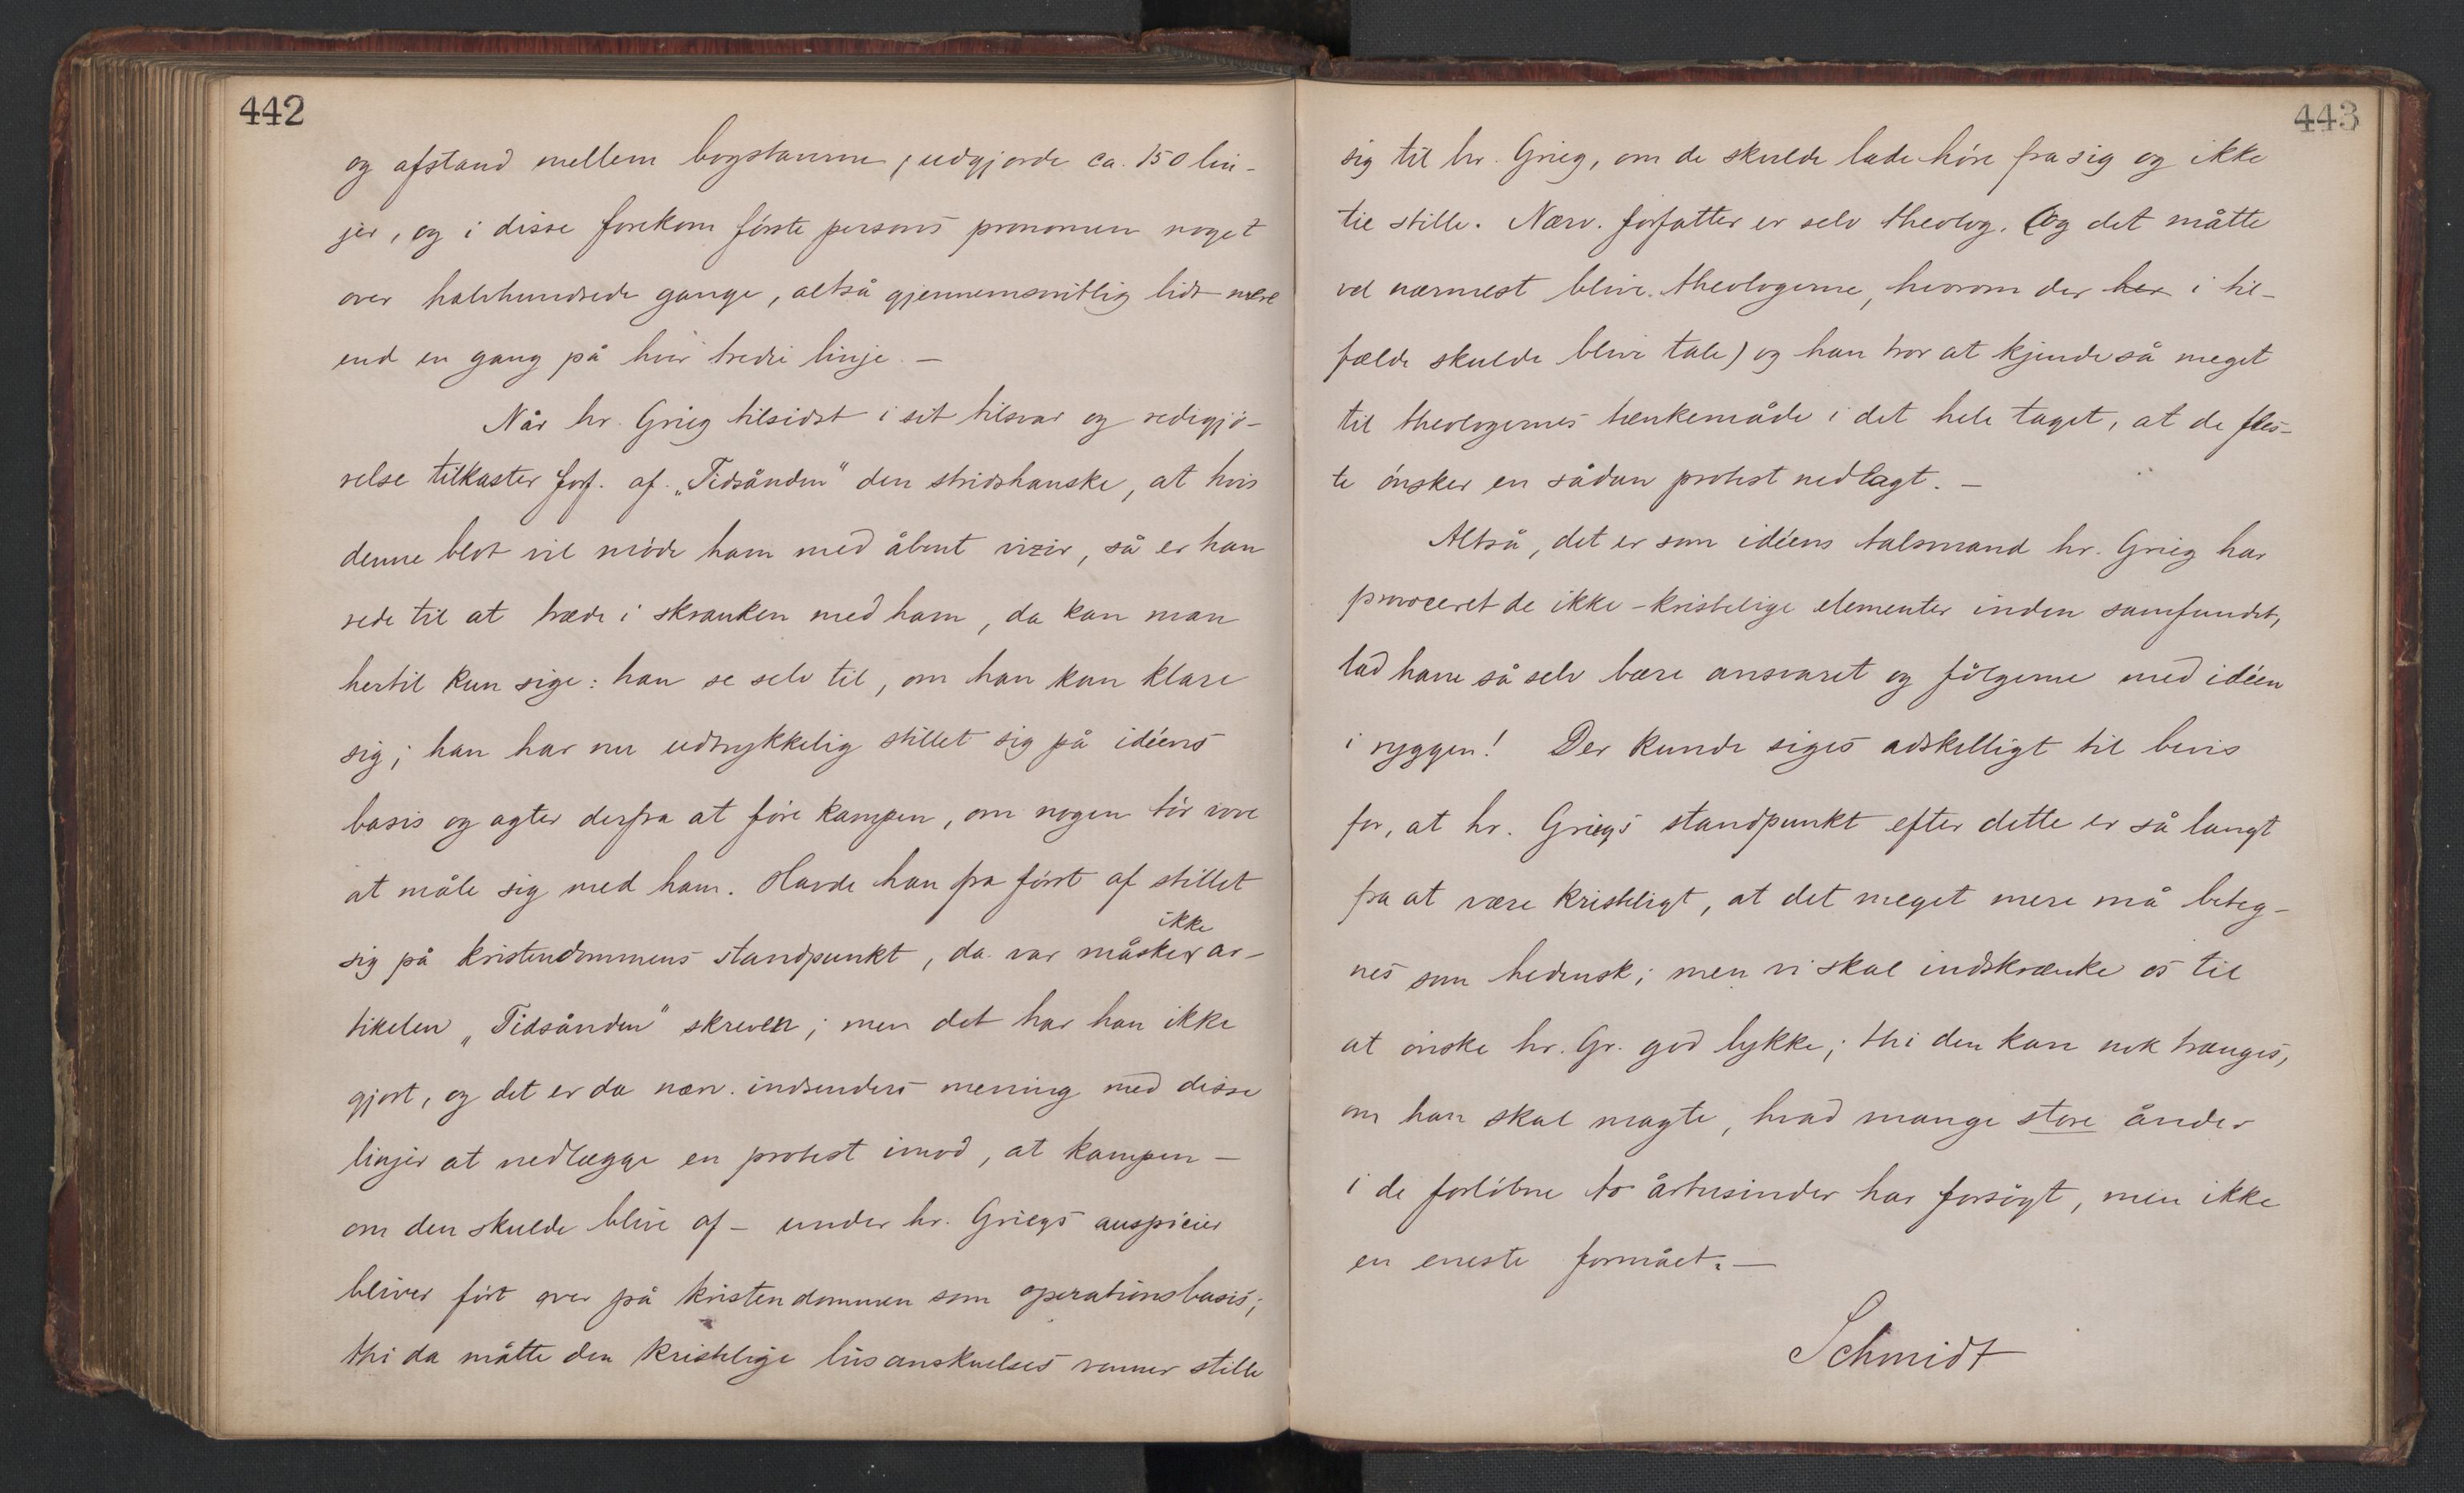 442
og afstand mellem bogstaverne, udgjorde ca. 150 lin-
jer, og i disse forekom første persons pronomen noget
over halvhundrede gange, altså gjennemsnitlig lidt mere
end en gang på hver tredie linje. —
Når hr. Grieg tilsidst i sit tilsvar og redegjø-
relse tilkaster forf. af „Tidsånden" den stridshanske, at hvis
denne blot vil møde ham med åbent vizir, så er han
rede til at træde i skranken med ham, da kan man
hertil kun sige: han se selv til, om han kan klare
sig; han har nu udtrykkelig stillet sig på idéens
basis og agter derfra at føre kampen, om nogen tør vove
at måle sig med ham. Havde han fra først af stillet
ikke
sig på kristendommens standpunkt, da var måske ar-
tikelen „Tidsånden" skreven; men det har han ikke
gjort, og det er da nærv. indsenders mening med disse
linjer at nedlægge en protest imod, at kampen —
om den skulde blive af — under hr. Griegs auspicier
bliver ført over på kristendommen som operationsbasis;
thi da måtte den kristelige livsanskuelses venner stille
443
sig til hr. Grieg, om de skulde lade høre fra sig og ikke
tie stille. Nærv. forfatter er selv theolog. (og det måtte
vel nærmest blive theologerne, hvorom der her i til-
fælde skulde blive tale) og han tror at kjende så meget
til theologernes tænkemåde i det hele taget, at de fles-
te ønsker en sådan protest nedlagt. —
Altså, det er som idéens talsmand hr. Grieg har
provoceret de ikke-kristelige elementer inden samfundet,
lad ham så selv bære ansvaret og følgerne med idéen
i ryggen! Der kunde siges adskelligt til bevis
for, at hr. Griegs standpunkt efter dette er så langt
fra at være kristeligt, at det meget mere må beteg-
nes som hedensk; men vi skal indskrænke os til
at ønske hr. Gr. god lykke; thi den kan nok trænges,
om han skal magte, hvad mange store ånder
i de forløbne to årtusinder har forsøgt, men ikke
en eneste formået. —
Schmidt